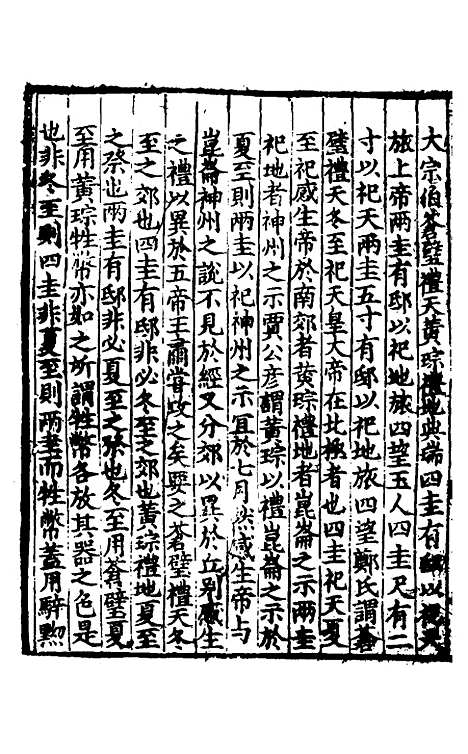 大宗伯蒼璧禮天黃琮禮地典瑞四圭有邸以祀天
旅上帝兩圭有邸以祀地旅四望玉人四圭尺有二
寸以祀天兩圭五寸有邸以祀地旅四望鄭氏謂蒼
璧禮天冬至祀天皇大帝在北極者也四圭祀天夏
至祀感生帝於南郊者黄琮禮地者崑崙之示兩圭
祀地者神州之示賈公彦謂黄琮以禮崑崙之示於
夏至則兩圭以祀神州之示宜於七月然感生帝與
崑崙神州之說不見於經又分郊以異於丘别感生
之禮以異於五帝王肅嘗攻之矣要之蒼璧禮天冬
至之郊也四圭有邸非必冬至之郊也黄琮禮地夏至
之祭也兩圭有邸非必夏至之祭也冬至用蒼璧夏
至用黄琮牲幣亦如之所謂牲幣各放其器之色是
也非冬至則四圭非夏至則兩圭而牲幣蓋用騂黝